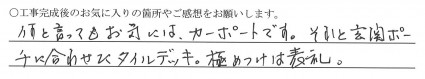 ○工事完成後のお気に入りの箇所やご感想をお願いします。
何と言ってもお気には、カーポートです。それと玄関ポー
チに合わせてタイルデッキ。極めつけは表札。